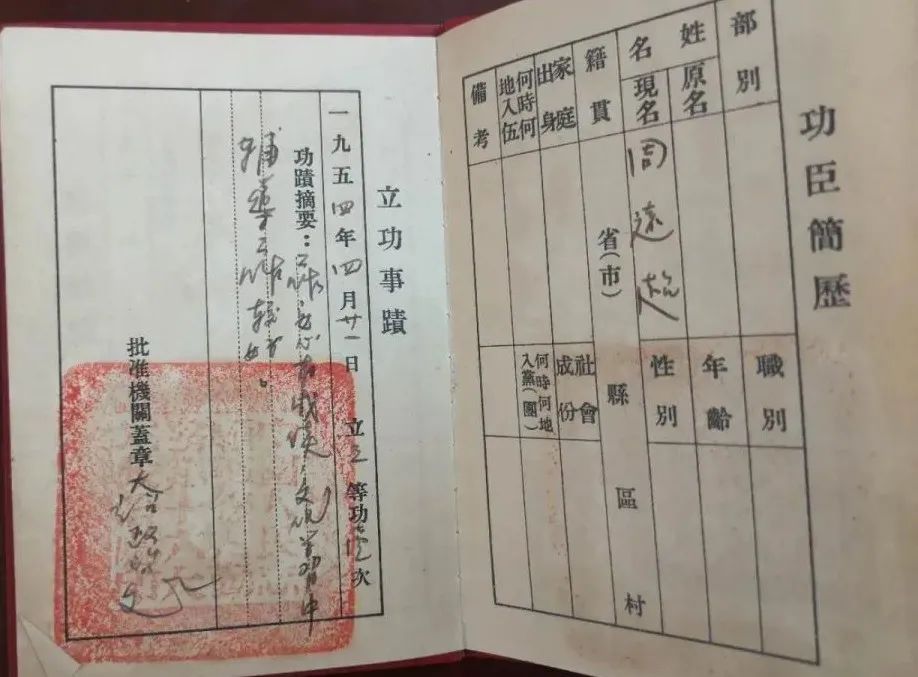 功臣簡歷
部別
職別
姓名
原名
年齡
現名
周遠
性別
籍貫
省(市)
縣
區
村
家庭出身
社會成份
何時何地入伍
何時何地入黨(團)
備考
立功事蹟
一九五四年四月廿一日 立三等功壹次
功蹟摘要：工作 有成績，文化學習中
輔導工作較好。
批准機關蓋章